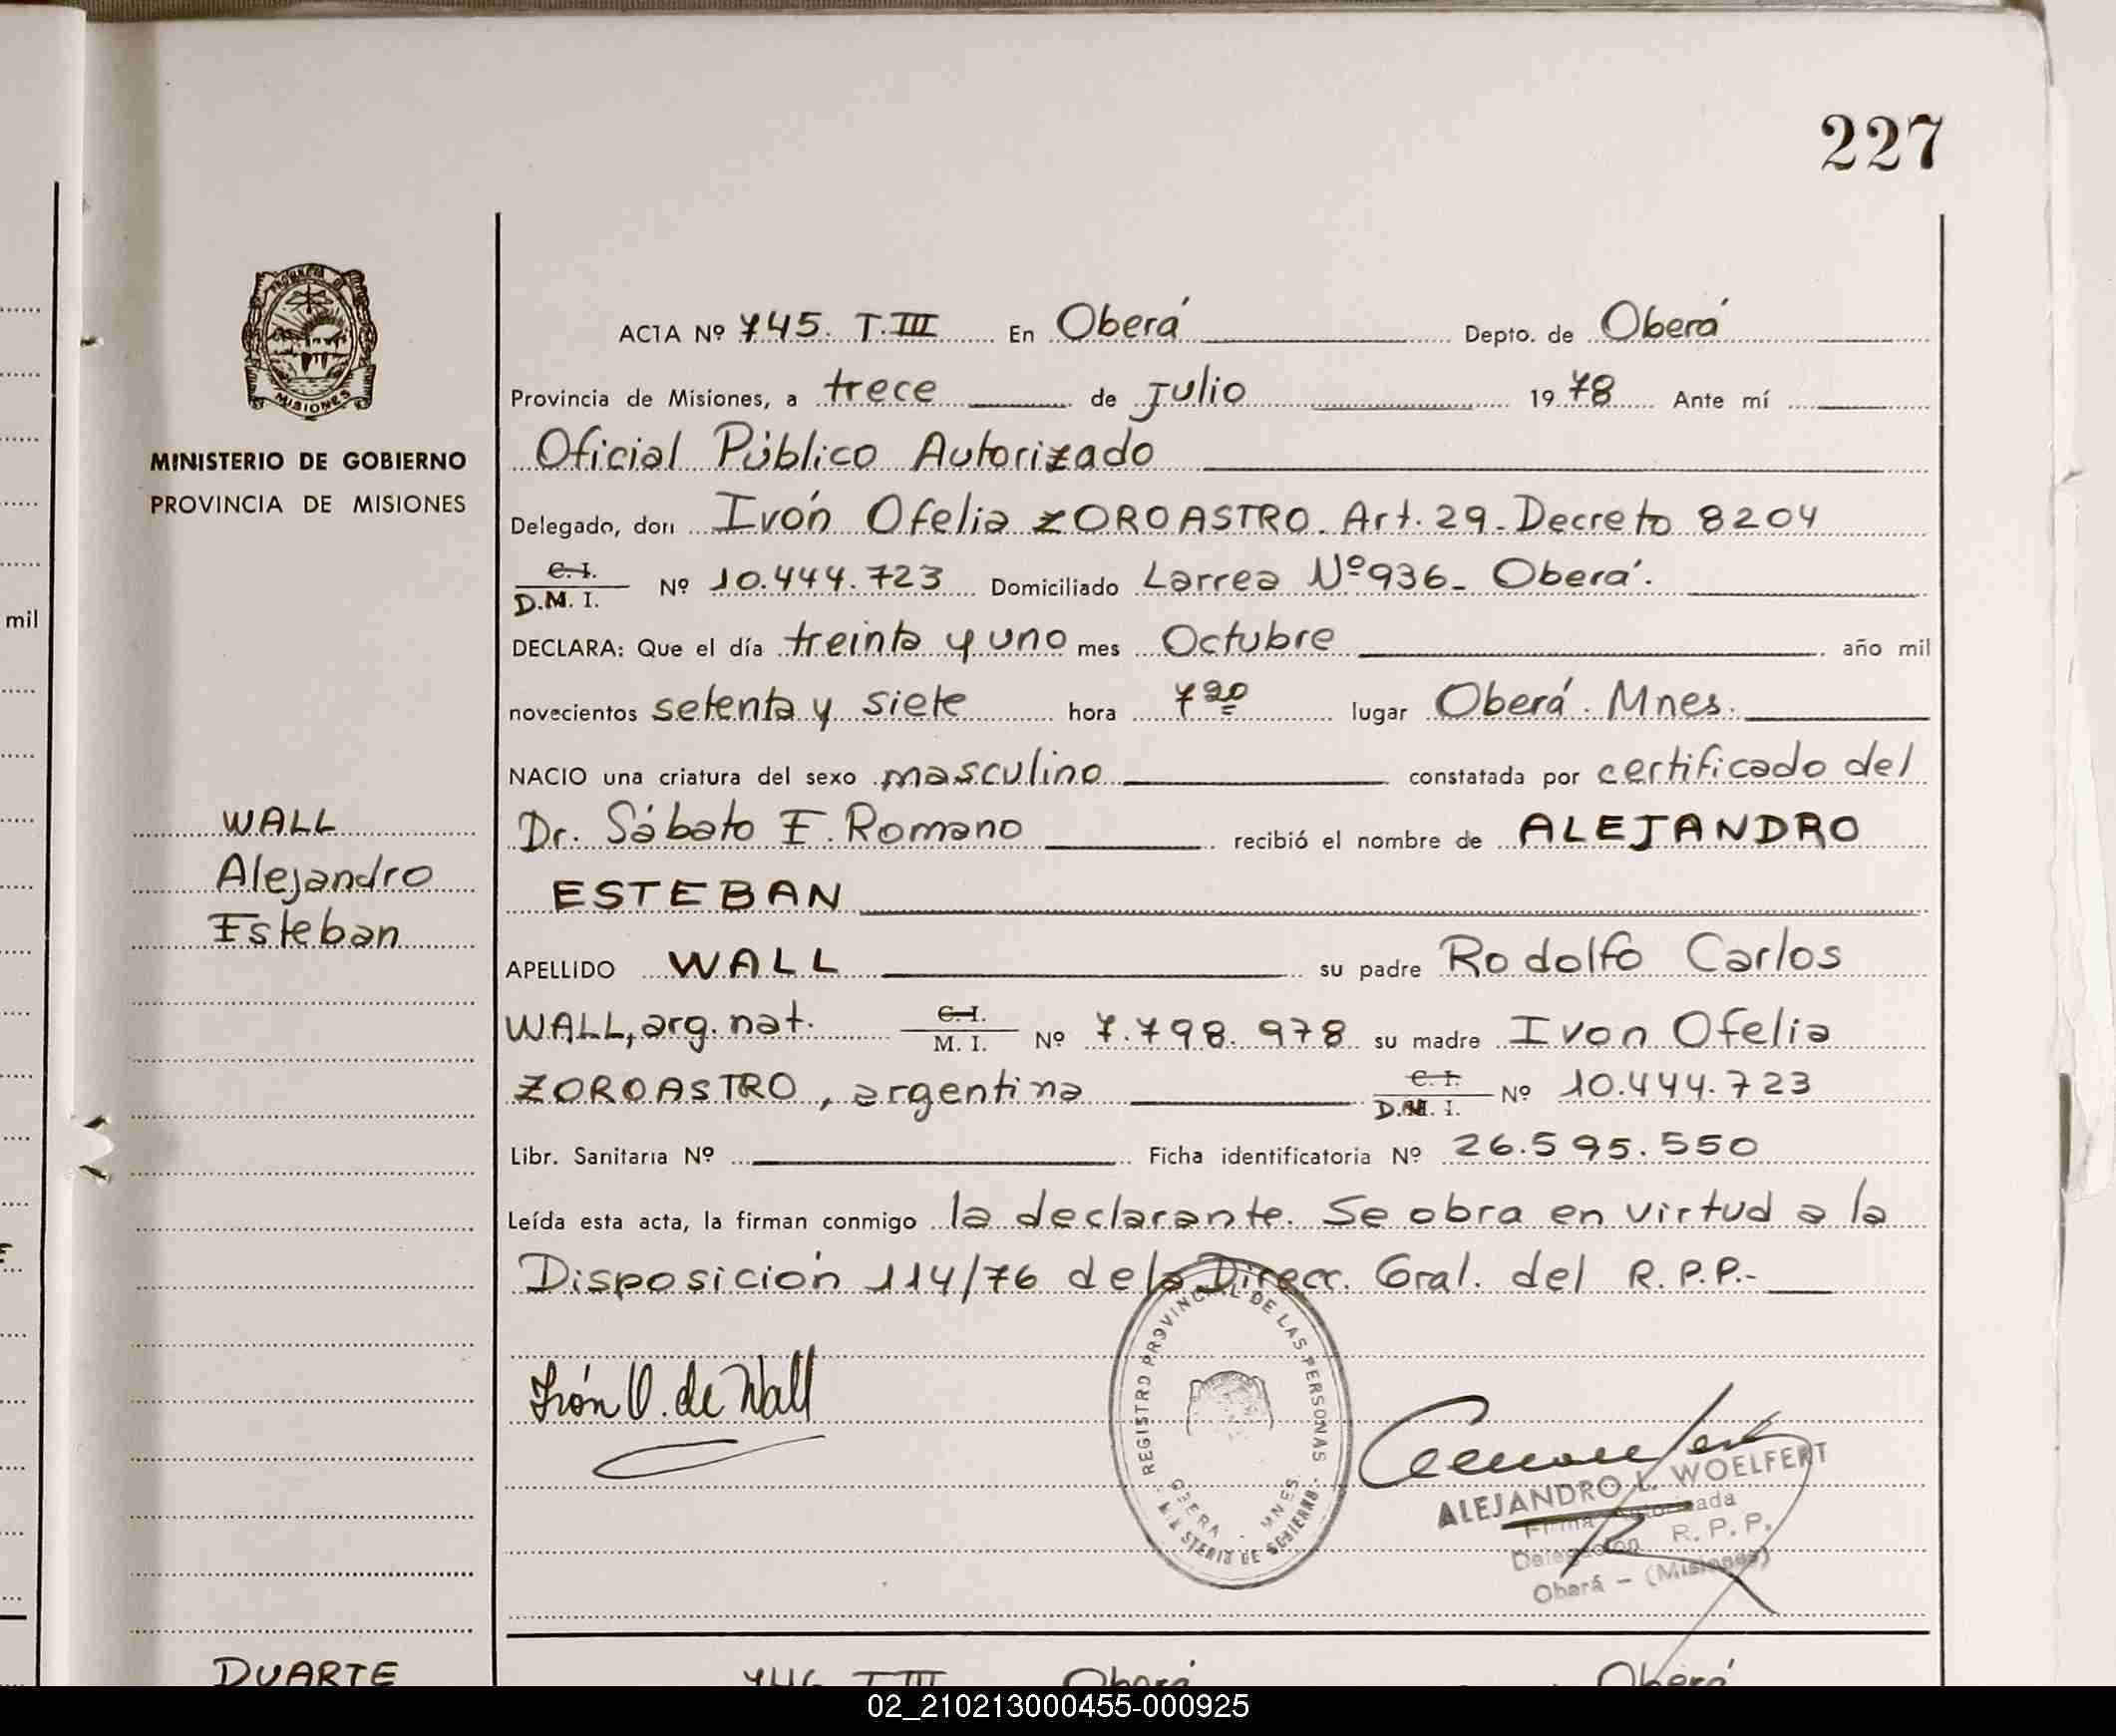 227
PROVINCIA DE
MISIONES
MINISTERIO DE GOBIERNO
PROVINCIA DE MISIONES
mil
WALL
Alejandro
Esteban
ACTA Nº 745. T.III En Oberá Depto. de Oberá
Provincia de Misiones, a trece de Julio 1978 Ante mí
Oficial Público Autorizado
Delegado, don Ivón Ofelia ZOROASTRO. Art. 29. Decreto 8204
C.I.
D.M.I. Nº 10.444.723 Domiciliado Larrea Nº 936_ Oberá.
DECLARA: Que el día treinta y uno mes Octubre año mil
novecientos setenta y siete hora 7 20 lugar Oberá. Mnes.
NACIO una criatura del sexo masculino constatada por certificado del
Dr. Sábato E. Romano recibió el nombre de ALEJANDRO
ESTEBAN
APELLIDO WALL su padre Rodolfo Carlos
WALL, arg. nat. C.I. M.I. Nº 7.798.978 su madre Ivon Ofelia
ZOROASTRO, argentina C.I. D.M.I. Nº 10.444.723
Libr. Sanitaria Nº Ficha identificatoria Nº 26.595.550
Leída esta acta, la firman conmigo la declarante. Se obra en virtud a la
Disposición 114/76 de la Direcc. Gral. del R.P.P.-
Ivón O. de Wall
REGISTRO PROVINCIAL DE LAS PERSONAS
OBERA - MNES
MINISTERIO DE GOBIERNO
ALEJANDRO L. WOELFERT
Firma Autorizada
Delegación R.P.P.
Oberá - (Misiones)
DUARTE 746 T III Oberá Oberá
02_210213000455-000925